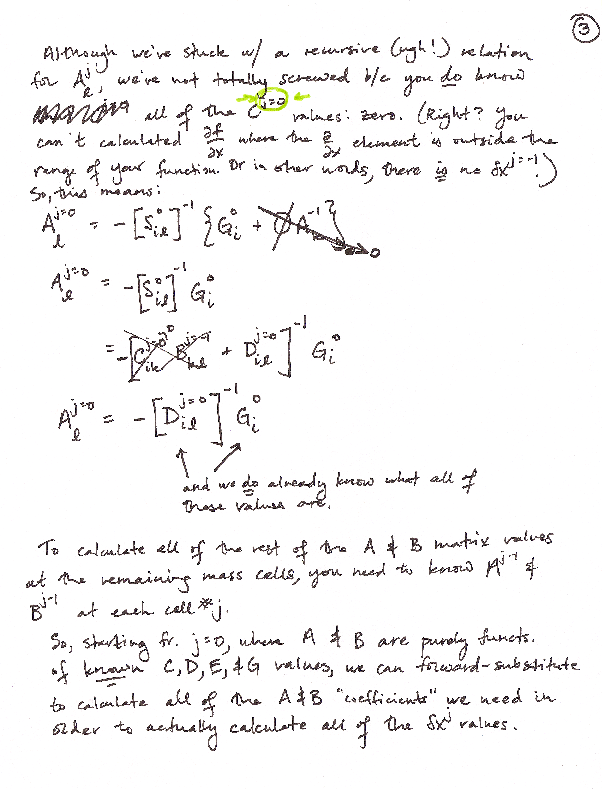 3
Although we've stuck w/ a recursive (ugh!) relation
for A_l^j, we've not totally screwed b/c you do know
all of the C^{j=0} values: zero. (Right? You
can't calculated ∂f/∂x where the ∂/∂x element is outside the
range of your function. Or in other words, there is no δx^{j=-1}!)
So, this means:
A_l^{j=0} = -[S_{il}^0]^{-1} {G_i^0 + 0 A_k^{-1}} → 0
A_l^{j=0} = -[S_{il}^0]^{-1} G_i^0
= -[C_{ik}^{j=0} B_{kl}^{j=-1} + D_{il}^{j=0}]^{-1} G_i^0
A_l^{j=0} = -[D_{il}^{j=0}]^{-1} G_i^0
and we do already know what all of
those values are.
To calculate all of the rest of the A & B matrix values
at the remaining mass cells, you need to know A^{j-1} &
B^{j-1} at each cell # j.
So, starting fr. j=0, where A & B are purely functs.
of known C, D, E, & G values, we can forward-substitute
to calculate all of the A & B "coefficients" we need in
order to actually calculate all of the δx^j values.